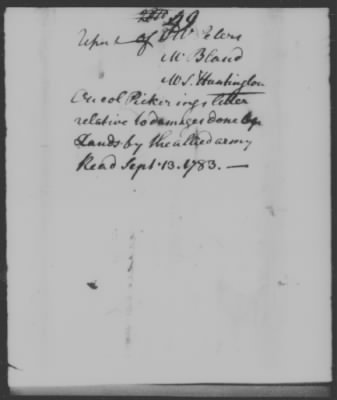 29
Report of Mr Peters
Mr Bland
Mr S. Huntington
On Col Pickerings letter
relative to damages done to
Lands by the allied army
Read Sept. 13. 1783. —